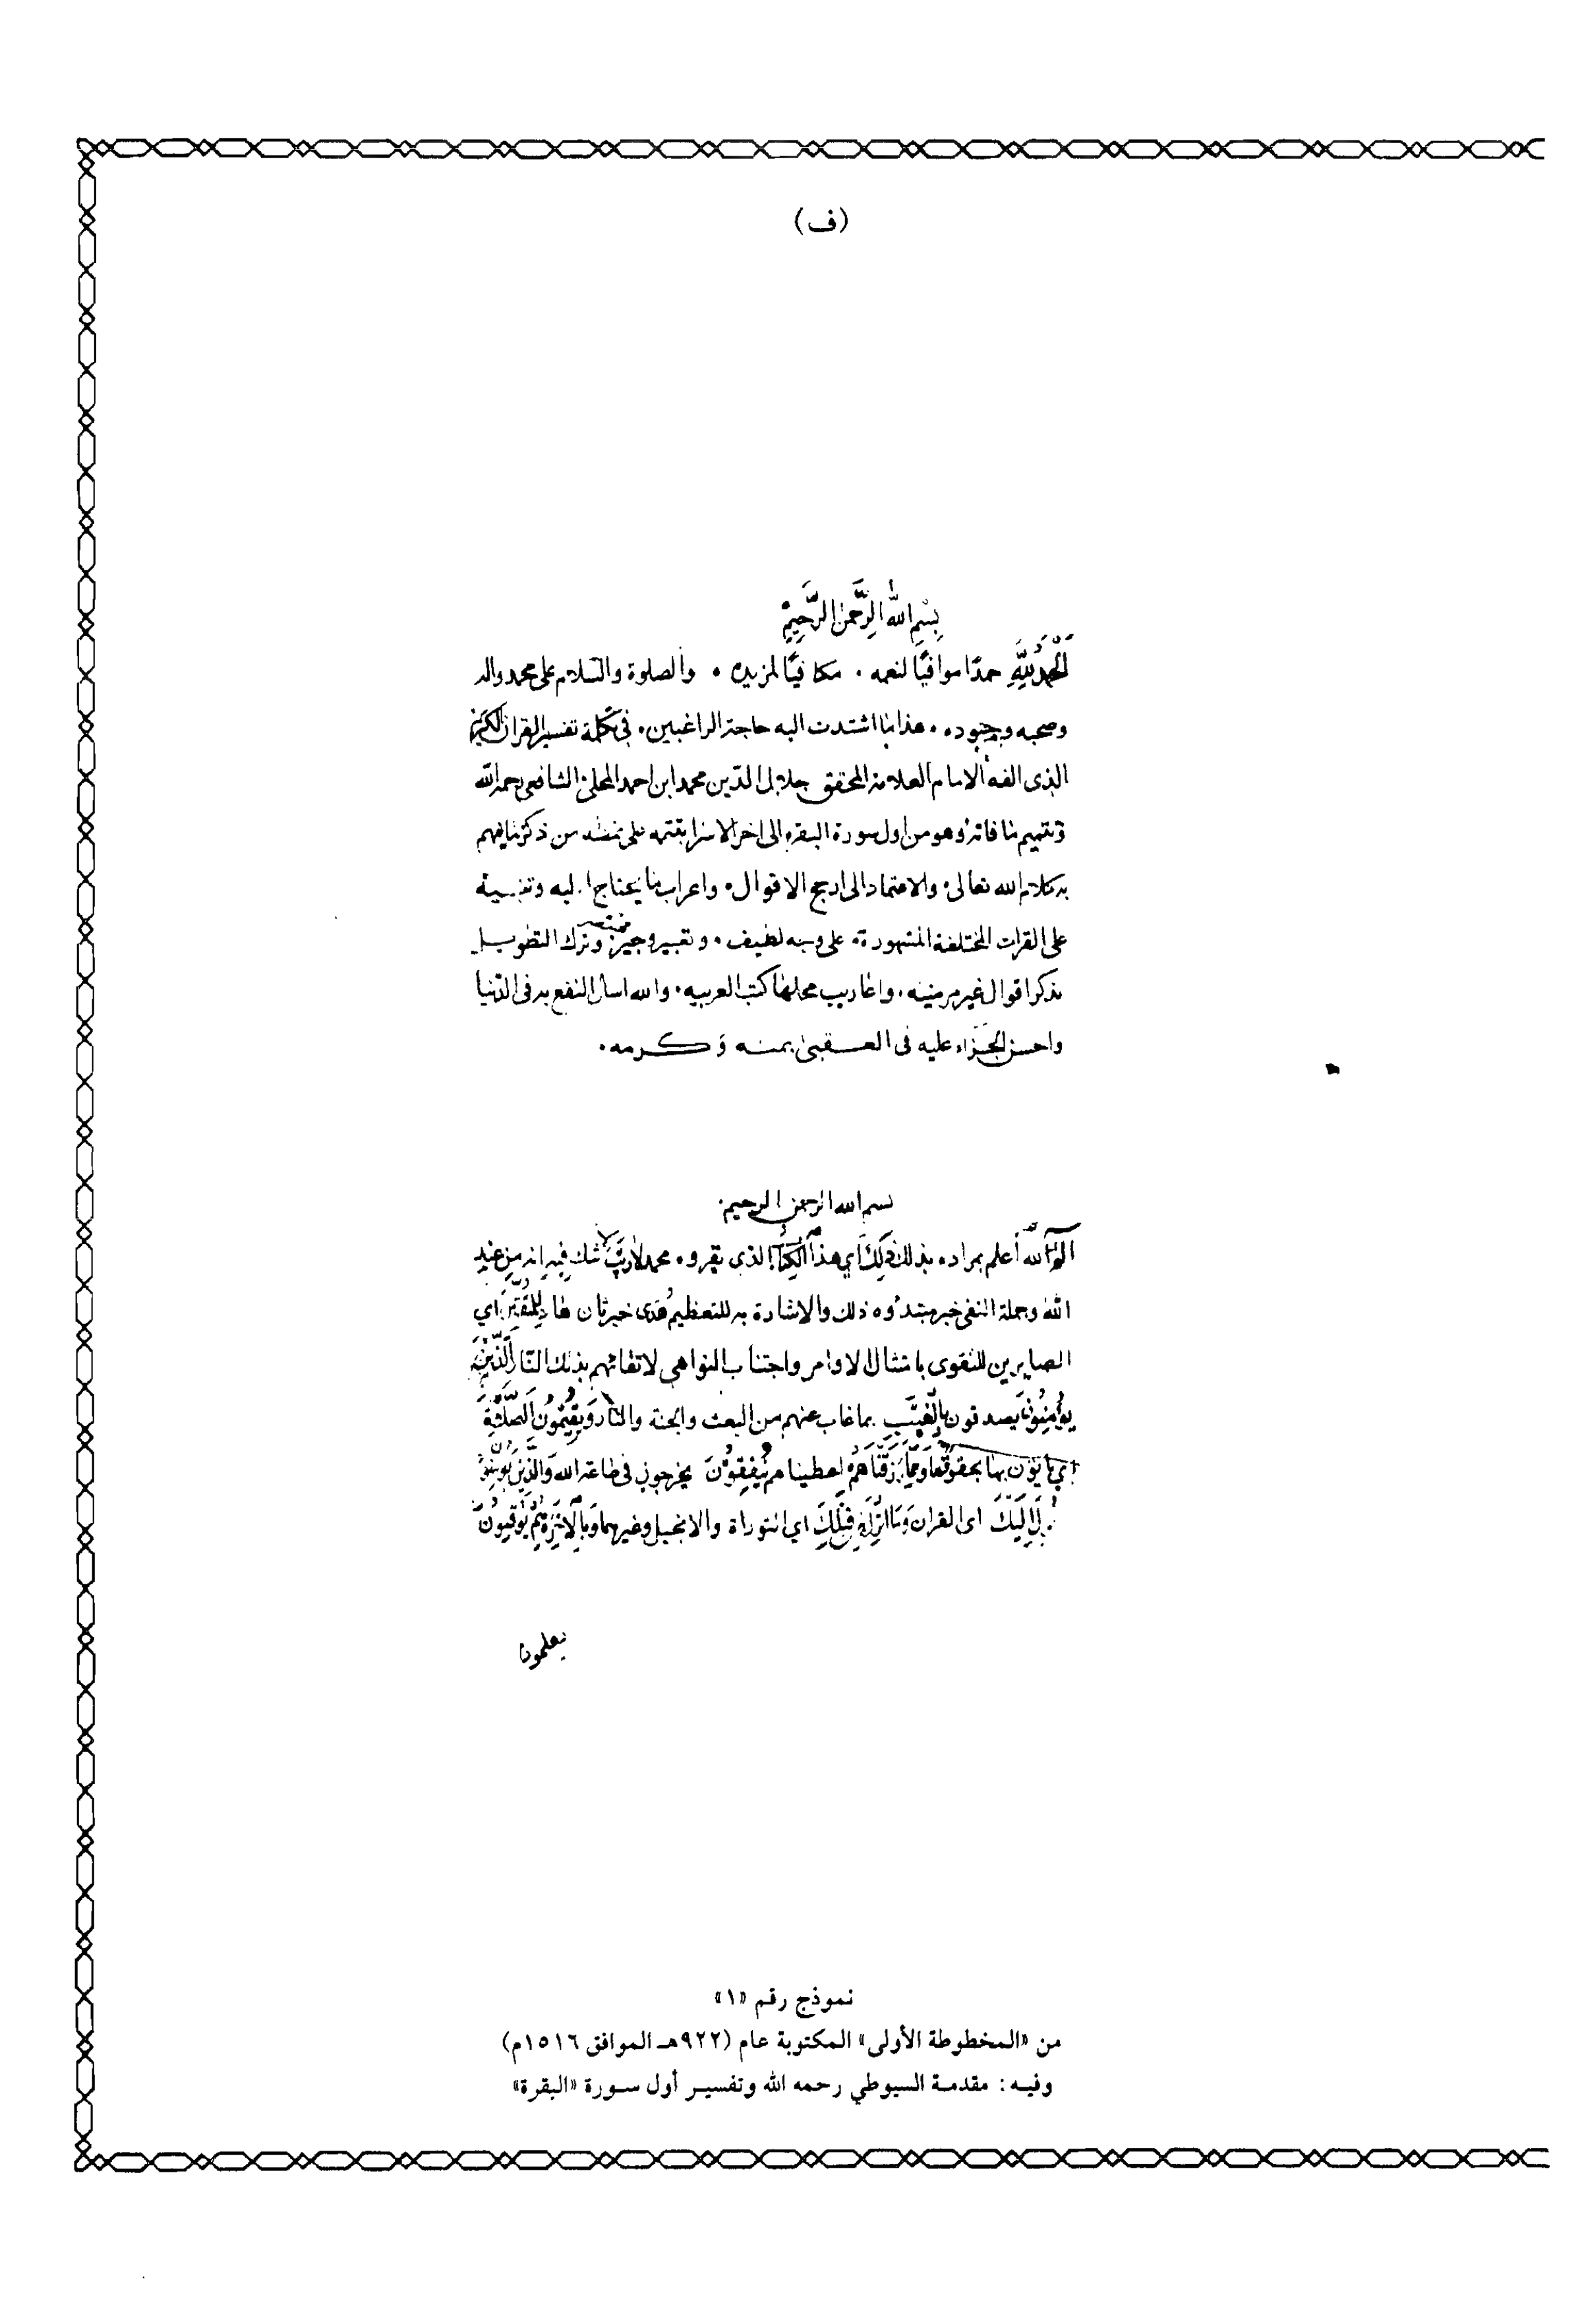 (ف)
بِسْمِ اللهِ الرَّحْمٰنِ الرَّحِيْمِ
اَلْحَمْدُ لِلّٰهِ حمدًا موافيًا لنعمه ۰ مكافيًا لمزيده ۰ والصلوة والسّلام على محمد واله
وصحبه وجنوده ۰ هذا ما اشتدت اليه حاجة الراغبين ۰ في تكملة تفسير القران الكريم
الذى الفه الامام العلامة المحقق جلال الدّين محمد ابن احمد المحلى الشافعى رحمه الله
وتتميم ما فاته وهو من اول سورة البقره الى اخر الاسرا بتتمه على نمطه من ذكر ما يفهم
به كلام الله تعالى ۰ والاعتماد الى ارجح الاقوال ۰ واعراب ما يحتاج اليه وتنبيه
على القرات المختلفة المشهورة ۰ على وجه لطيف ۰ وتعبير وجيز مختصر وترك التطويل
بذكر اقوال غير مرضيه ۰ واعاريب محلها كتب العربيه ۰ والله اسأل النفع به فى الدّنيا
واحسن الجَزَاء عليه فى العقبى بمنه وكرمه ۰
بسم الله الرحمن الرحيم
الٓمّٓ الله أعلم بمراده بذلك ذٰلِكَ اي هذا الْكِتٰبُ الذى يقروه محمد لَا رَيْبَ شك فِيهِ انه من عند
الله وجملة النفى خبر مبتدؤه ذلك والاشارة به للتعظيم هُدًى خبر ثان لِلْمُتَّقِيْنَ اي
الصايرين للتقوى بامتثال الاوامر واجتناب النواهى لاتقائهم بذلك النار اَلَّذِيْنَ
يُؤْمِنُوْنَ يصدقون بِالْغَيْبِ بما غاب عنهم من البعث والجنة والنار وَيُقِيْمُوْنَ الصَّلٰوةَ
اي ياتون بها بحقوقها وَمِمَّا رَزَقْنَاهُمْ اعطيناهم يُنْفِقُوْنَ يخرجون فى طاعة الله وَالَّذِيْنَ يُؤْمِنُوْنَ
اِلَيْكَ اى القران وَمَا اُنْزِلَ مِنْ قَبْلِكَ اي التوراة والانجيل وغيرهما وَبِالْاٰخِرَةِ هُمْ يُوْقِنُوْنَ
يعلمون
نموذج رقم «١»
من «المخطوطة الأولى» المكتوبة عام (٩٢٢هـ الموافق ١٥١٦م)
وفيه: مقدمة السيوطي رحمه الله وتفسير أول سورة «البقرة»